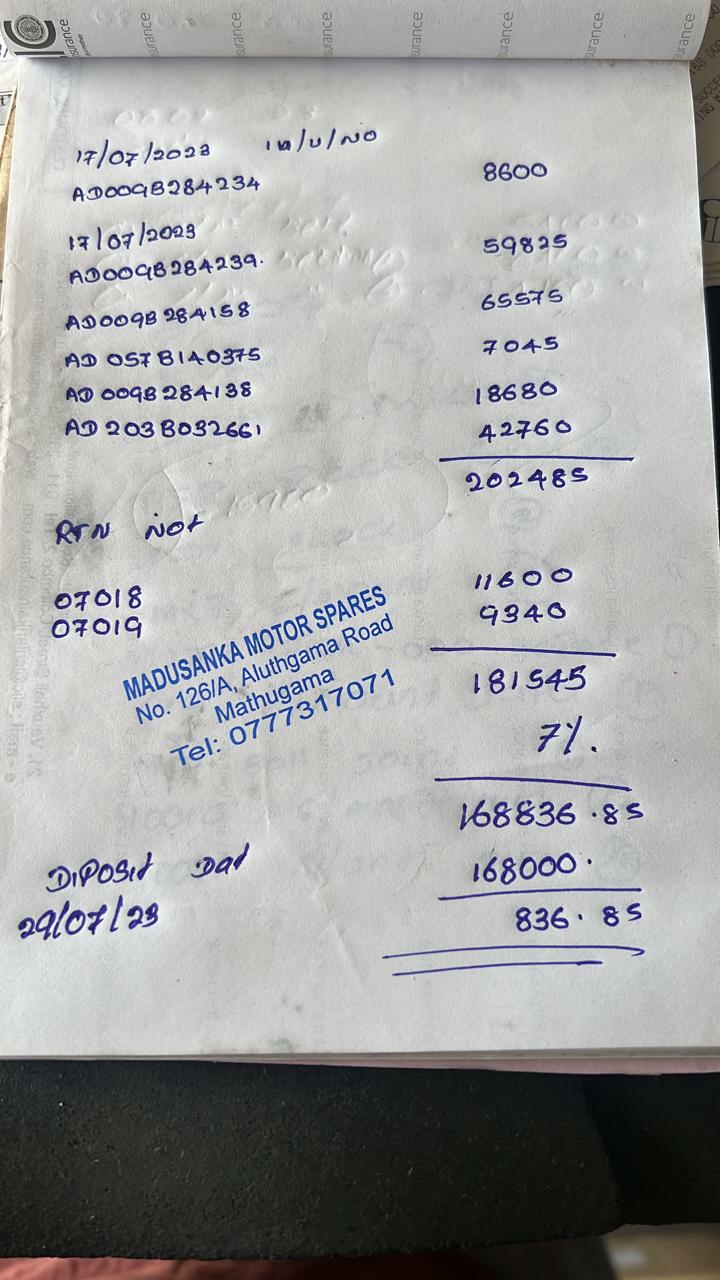 urance urance urance urance urance urance urance urance
17/07/2023 IN/V/NO
AD009B284234 8600
17/07/2023
AD009B284239. 59825
AD009B 284158 65575
AD 057B140375 7045
AD 009B 284138 18680
AD 203B032661 42760
202485
RTN Not
07018 11600
07019 9340
MADUSANKA MOTOR SPARES
No. 126/A, Aluthgama Road
Mathugama
Tel: 0777317071
181545
7%.
168836.85
DIPOSIt Dat 168000.
29/07/23 836.85